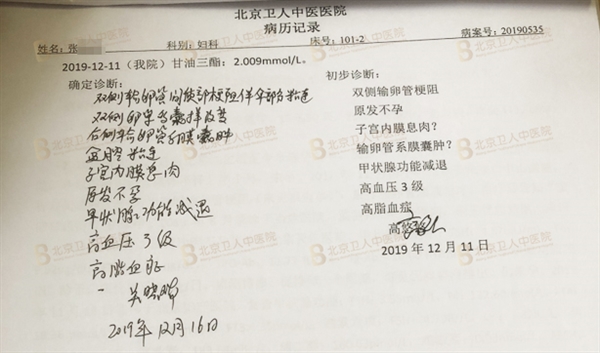 北京卫人中医医院
病历记录
姓名:张 科别:妇科 床号:101-2 病案号:20190535
2019-12-11(我院)甘油三酯:2.009mmol/L。
确定诊断:
双侧输卵管间质部梗阻伴伞部粘连
双侧卵巢多囊样改变
右侧输卵管系膜囊肿
盆腔粘连
子宫内膜息肉
原发不孕
甲状腺功能减退
高血压3级
高脂血症
2019年12月16日
初步诊断:
双侧输卵管梗阻
原发不孕
子宫内膜息肉?
输卵管系膜囊肿?
甲状腺功能减退
高血压3级
高脂血症
2019年12月11日
北京卫人中医院